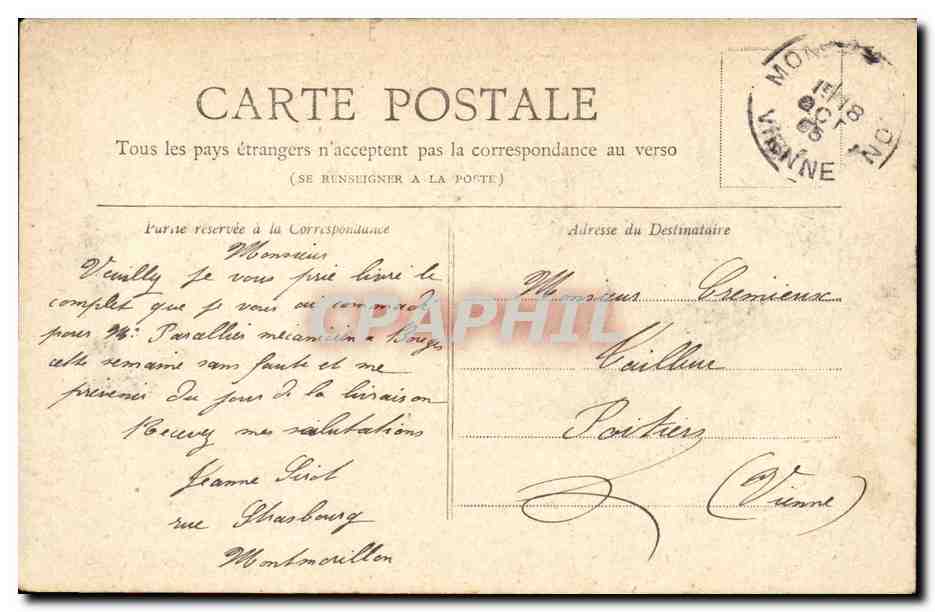 CARTE POSTALE
Tous les pays étrangers n'acceptent pas la correspondance au verso
(SE RENSEIGNER A LA POSTE)
MON
18
OCT
05
VIENNE
Partie réservée à la Correspondance
Monsieur
Veuilly je vous prie livré le
complet que je vous ai commadé
pour Mr Parallier mecanicien a Bouges
cette semaine sans faute et me
prevenez du jour de la livraison
Recevez mes salutations
Jeanne Sirot
rue Strasbourg
Montmorillon
Adresse du Destinataire
Monsieur Cremieux
Tailleur
Poitiers
(Vienne)
CPAPHIL